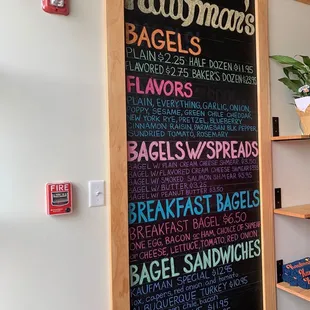 Kaufman's
BAGELS
PLAIN $2.25 HALF DOZEN
FLAVORED $2.75 BAKER'S DOZEN
FLAVORS
PLAIN, EVERYTHING, GARLIC, ONION,
POPPY, SESAME, GREEN CHILE CHEDDAR
NEW YORK RYE, PRETZEL, BLUEBERRY
CINNAMON RAISIN, PARMESAN BLACK PEPPER
SUNDRIED TOMATO, ROSEMARY
BAGELS W/ SPREADS
BAGEL W/ PLAIN CREAM CHEESE SHMEAR
BAGEL W/ FLAVORED CREAM CHEESE SHMEAR
BAGEL W/ SMOKED SALMON SHMEAR
BAGEL W/ BUTTER $3.25
BAGEL W/ PEANUT BUTTER
BREAKFAST BAGELS
BREAKFAST BAGEL $6.50
ONE EGG, BACON OR HAM, CHOICE OF
CHEESE, LETTUCE, TOMATO, RED ONION
BAGEL SANDWICHES
KAUFMAN SPECIAL $12.95
lox, capers, red onion and tomato
ALBUQUERQUE TURKEY $10.95
green chile, bacon
FIRE